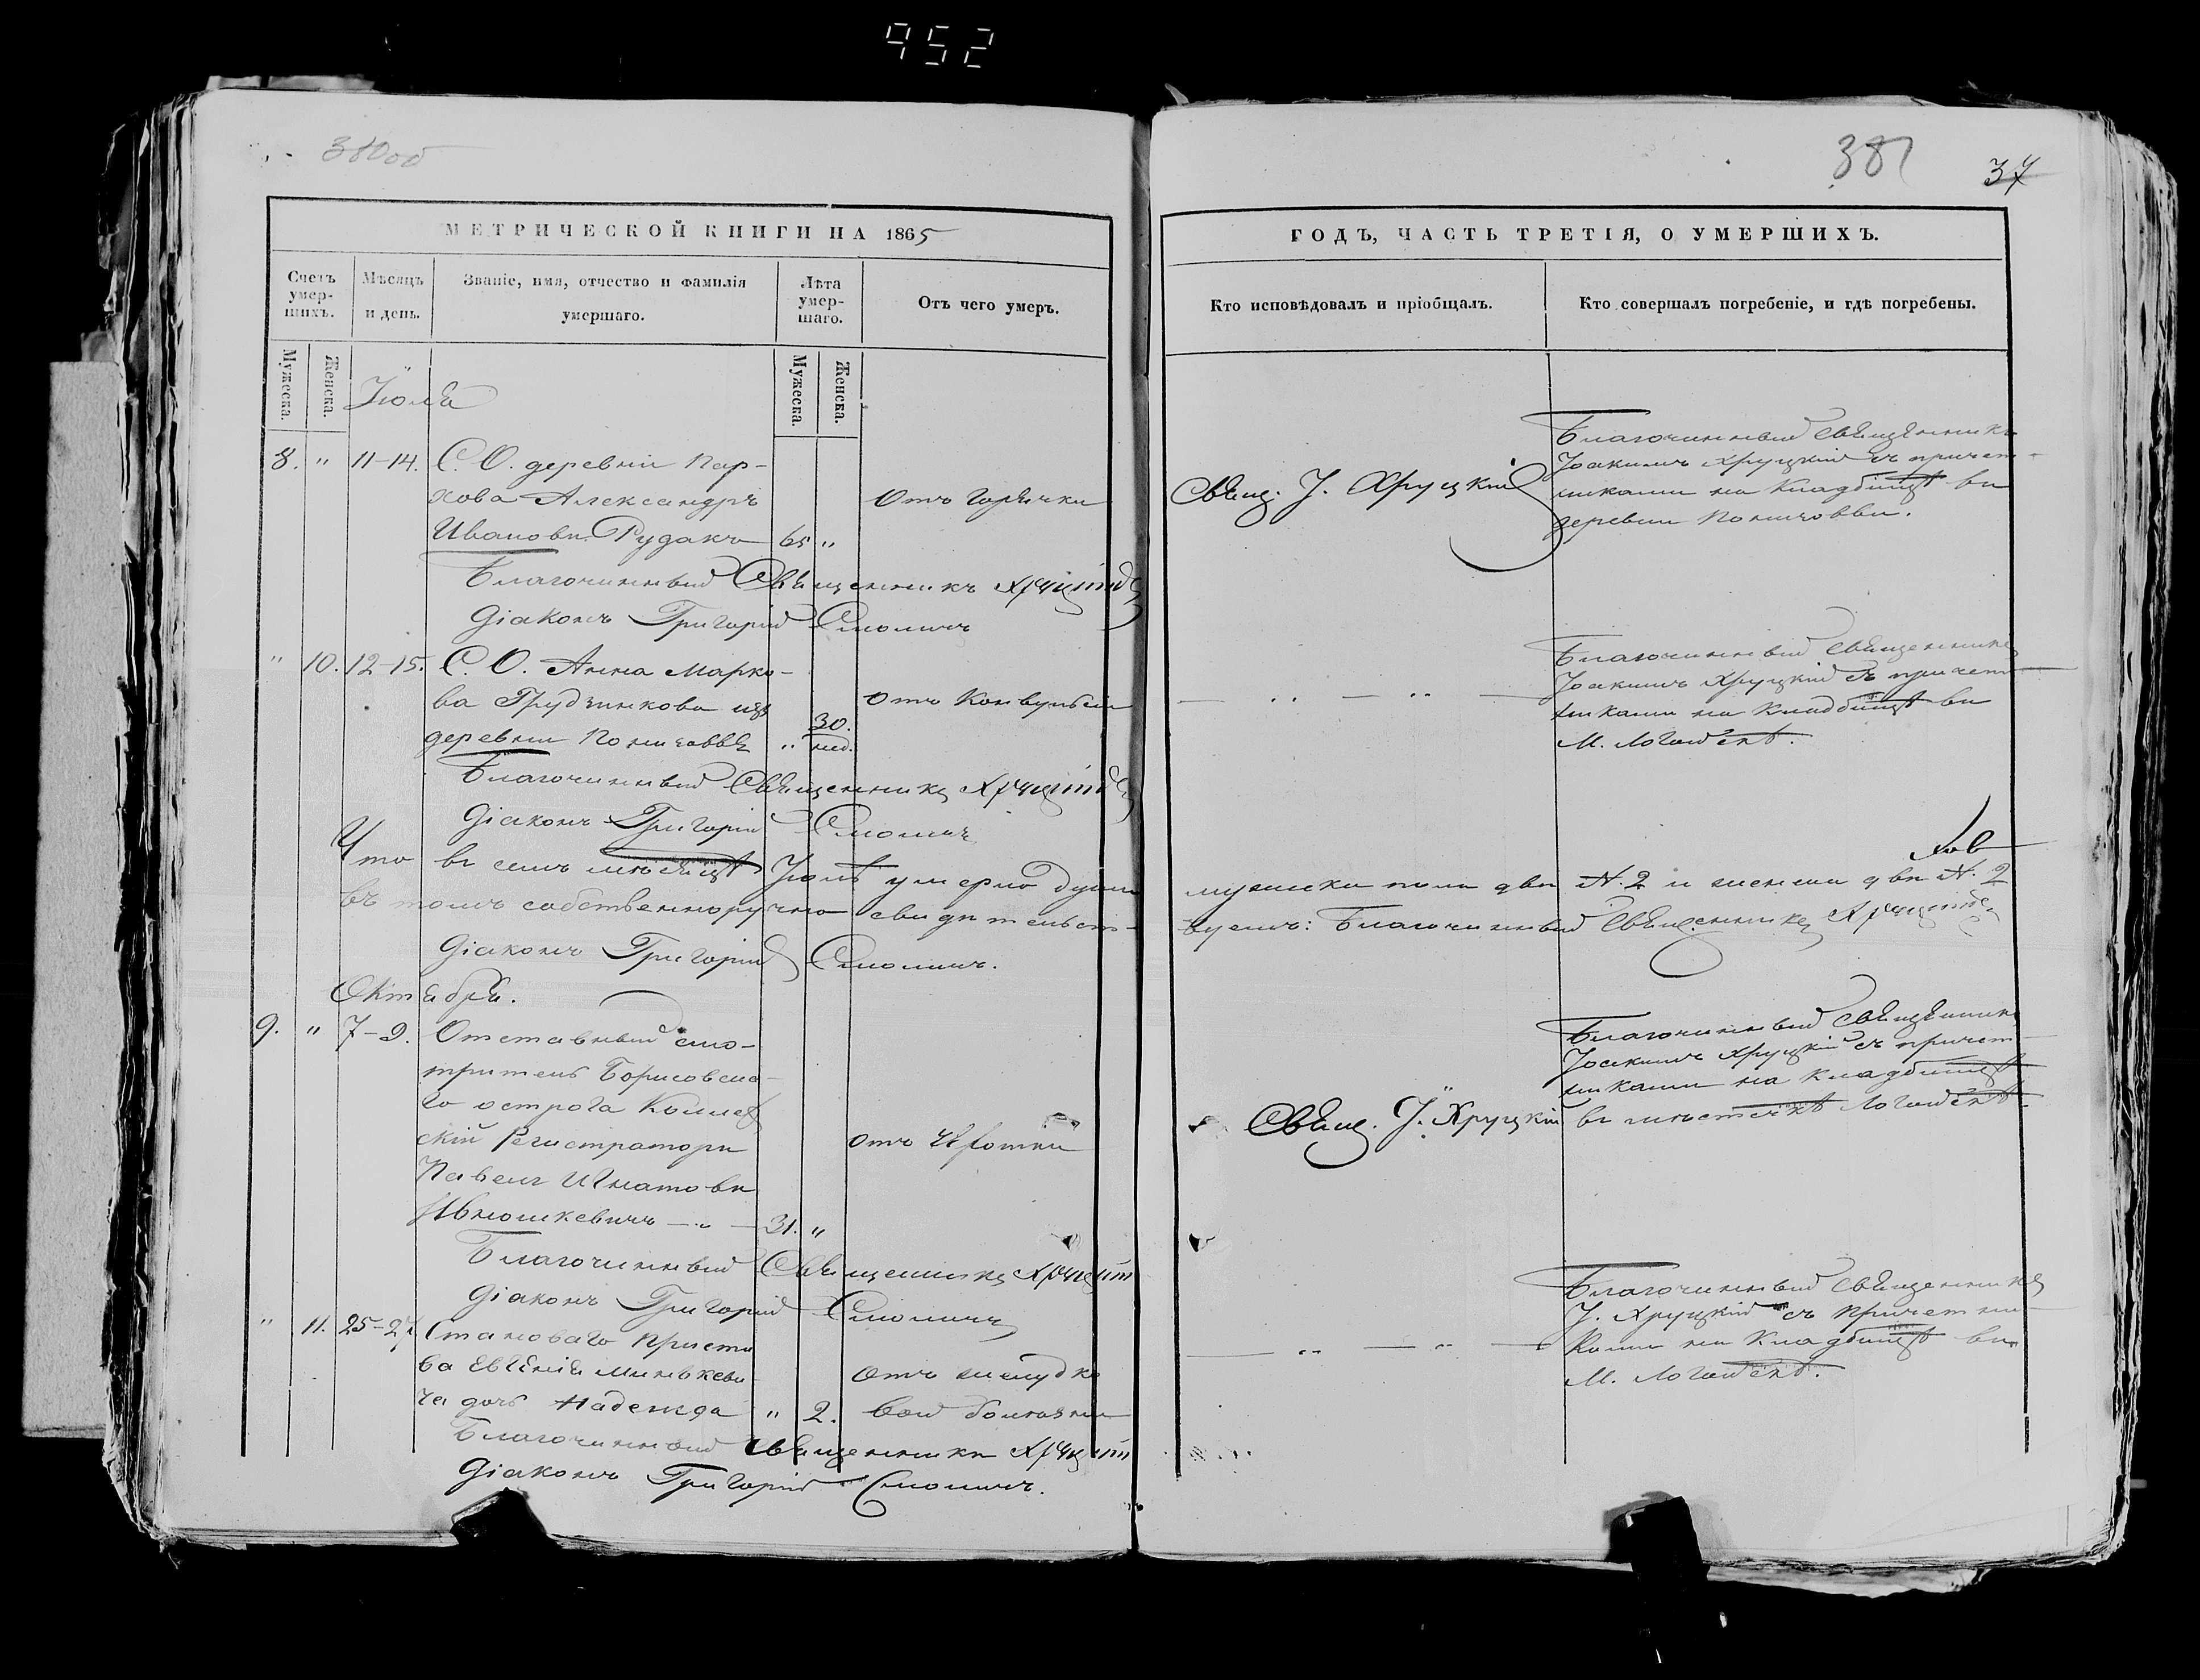 952
380об
МЕТРИЧЕСКОЙ КНИГИ НА 1865
Счетъ умер-шихъ.
Мѣсяцъ и день.
Званіе, имя, отчество и фамилія умершаго.
Лѣта умер-шаго.
Отъ чего умеръ.
Мужеска.
Женска.
Мужеска.
Женска.
Іюля
8. " 11-14. С. О. деревни Пар-
хова Александръ
отъ горячки
Ивановъ Рудакъ 65 "
Благочинный Священникъ Хруцкій
Діаконъ Григорій Смоличъ
" 10. 12-15. С. О. Анна Марко-
ва Грудзинкова изъ
отъ Конвульсіи
деревни " 30. нед.
Благочинный Священникъ Хруцкій
Діаконъ Григорій Смоличъ
Что въ семъ мѣсяцѣ Іюлѣ умерло душъ
въ томъ собственноручно свидѣтельст-
Діаконъ Григорій Смоличъ.
Октября.
9. " 7-9. Отставный смо-
тритель Борисовска-
го острога Коллеж
скій Регистраторъ
отъ чахотки
Павелъ Игнатовъ
Ивнюшкевичъ — " — 31. "
Благочинный Священникъ Хруцкій
Діаконъ Григорій Смоличъ
" 11. 25-27. Становаго Приста
ва Евгенія Минькеви
отъ желудко
ча дочь Надежда " 2. вой болѣзни
Благочинный Священникъ Хруцкій
Діаконъ Григорій Смоличъ.
381
37
ГОДЪ, ЧАСТЬ ТРЕТІЯ, О УМЕРШИХЪ.
Кто исповѣдовалъ и пріобщалъ.
Кто совершалъ погребеніе, и гдѣ погребены.
Благочинный Священникъ
Іоакимъ Хруцкій съ причет-
Свящ. І. Хруцкій
никами на Кладбищѣ въ
деревни
Благочинный Священникъ
Іоакимъ Хруцкій съ причет
— " — " —
никами на Кладбищѣ въ
М. Логойскѣ.
мужеска пола два N. 2 и женска два N. 2
вуемъ: Благочинный Священникъ Хруцкій
Благочинный Священникъ
Іоакимъ Хруцкій съ причет
никами на Кладбищѣ
Свящ. І. Хруцкій
въ мѣстечкѣ Логойскѣ.
Благочинный Священникъ
І. Хруцкій съ Причетни-
— " — " —
ками на Кладбищѣ въ
М. Логойскѣ.